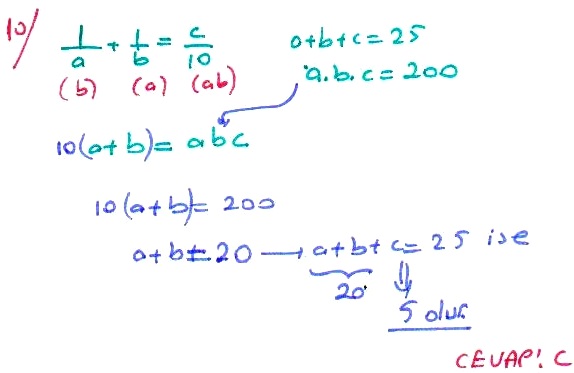 10/ 1/a + 1/b = c/10
(b) (a) (ab)
a+b+c=25
a.b.c=200
10(a+b)=abc
10(a+b)=200
a+b=20 → a+b+c=25 ise
20 ⇓
5 olur
CEVAP: C